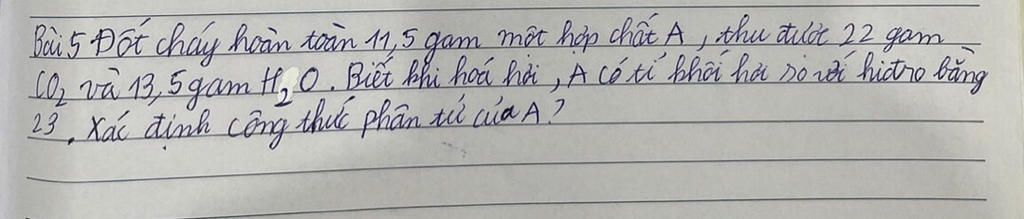 Bài 5 Đốt cháy hoàn toàn 11,5 gam một hợp chất A, thu được 22 gam
CO2 và 13,5 gam H2O. Biết khi hoá hơi, A có tỉ khối hơi so với hiđro bằng
23. Xác định công thức phân tử của A?